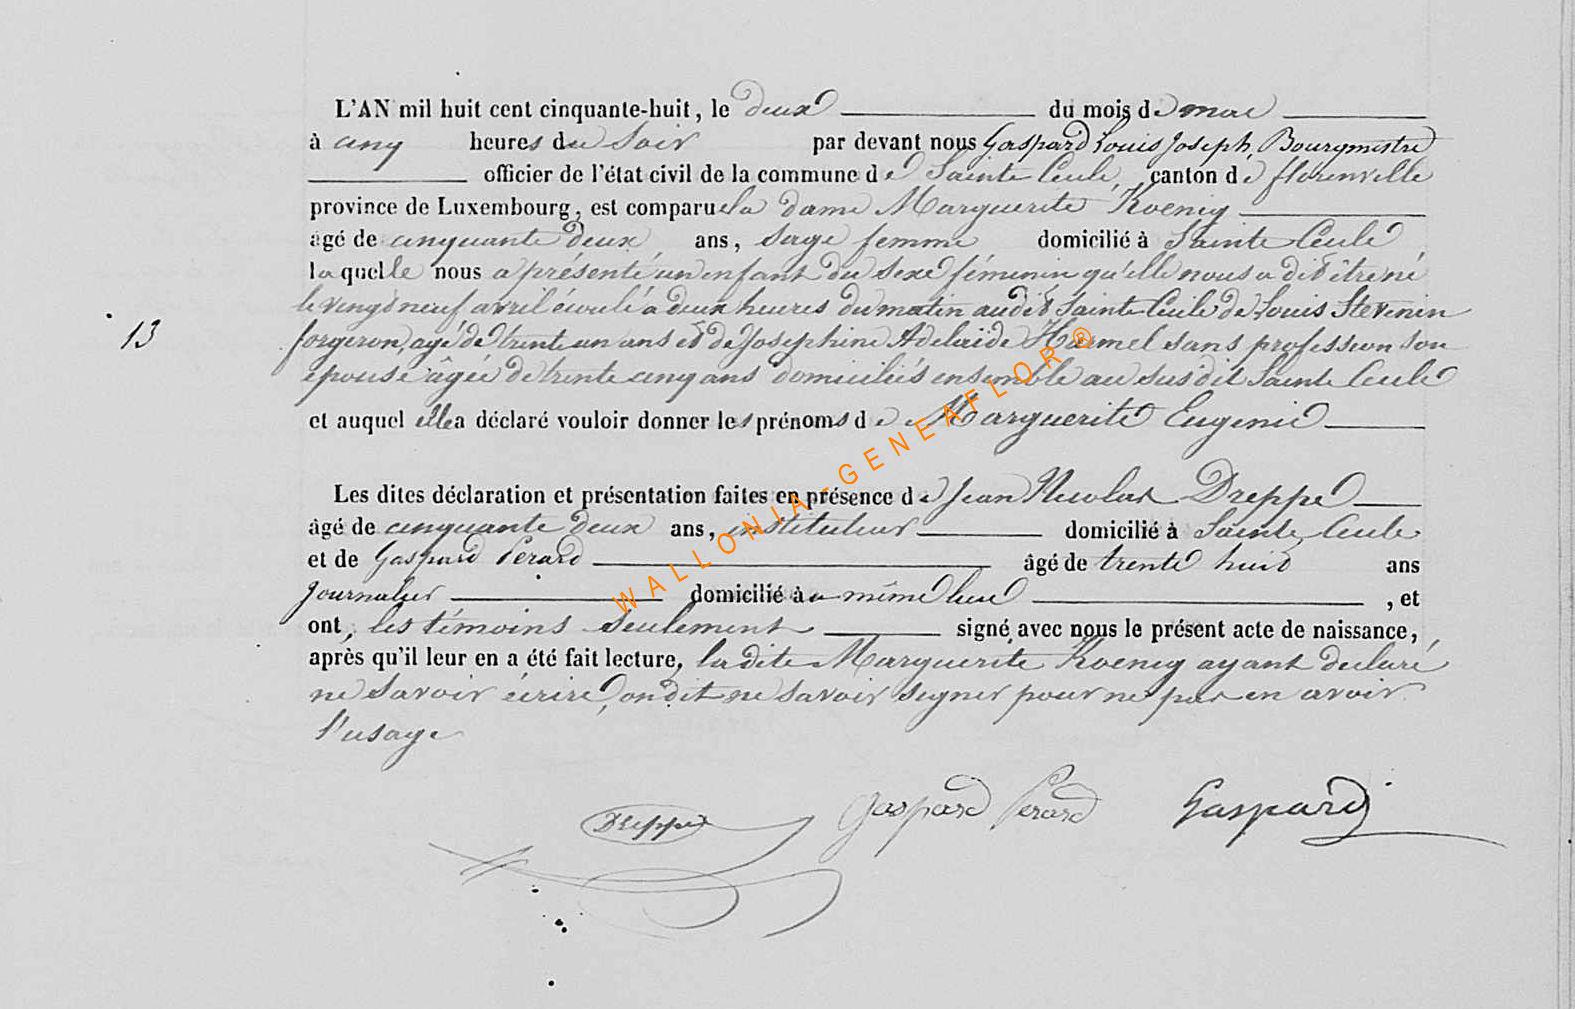 L'AN mil huit cent cinquante-huit, le deux du mois de mai
à cinq heures du Soir par devant nous Gaspard Louis Joseph Bourgmestre
officier de l'état civil de la commune de Sainte Cécile, canton de florenville
province de Luxembourg, est comparue la dame Marguerite Koenig
âgé de cinquante deux ans, sage femme domicilié à Sainte Cécile
laquelle nous a présenté un enfant du sexe féminin qu'elle nous a dit être né
le vingt neuf avril écoulé à deux heures du matin audit Sainte Cécile de Louis Stevenin
forgeron, agé de trente un ans et de Josephine Adelaïde Harmel sans profession son
épouse âgée de trente cinq ans domiciliés ensemble au susdit Sainte Cécile
13
et auquel elle a déclaré vouloir donner les prénoms de Marguerite Eugenie
Les dites déclaration et présentation faites en présence de Jean Nicolas Dreppe
âgé de cinquante deux ans, instituteur domicilié à Sainte Cécile
et de Gaspard Perard âgé de trente huit ans
Journalier domicilié à même lieu , et
ont, les témoins seulement signé avec nous le présent acte de naissance,
après qu'il leur en a été fait lecture, la dite Marguerite Koenig ayant déclaré
ne savoir écrire, on dit ne savoir signer pour ne pas en avoir
l'usage
Dreppe Gaspard Perard Gaspard
WALLONIA-GENEAFLOR®